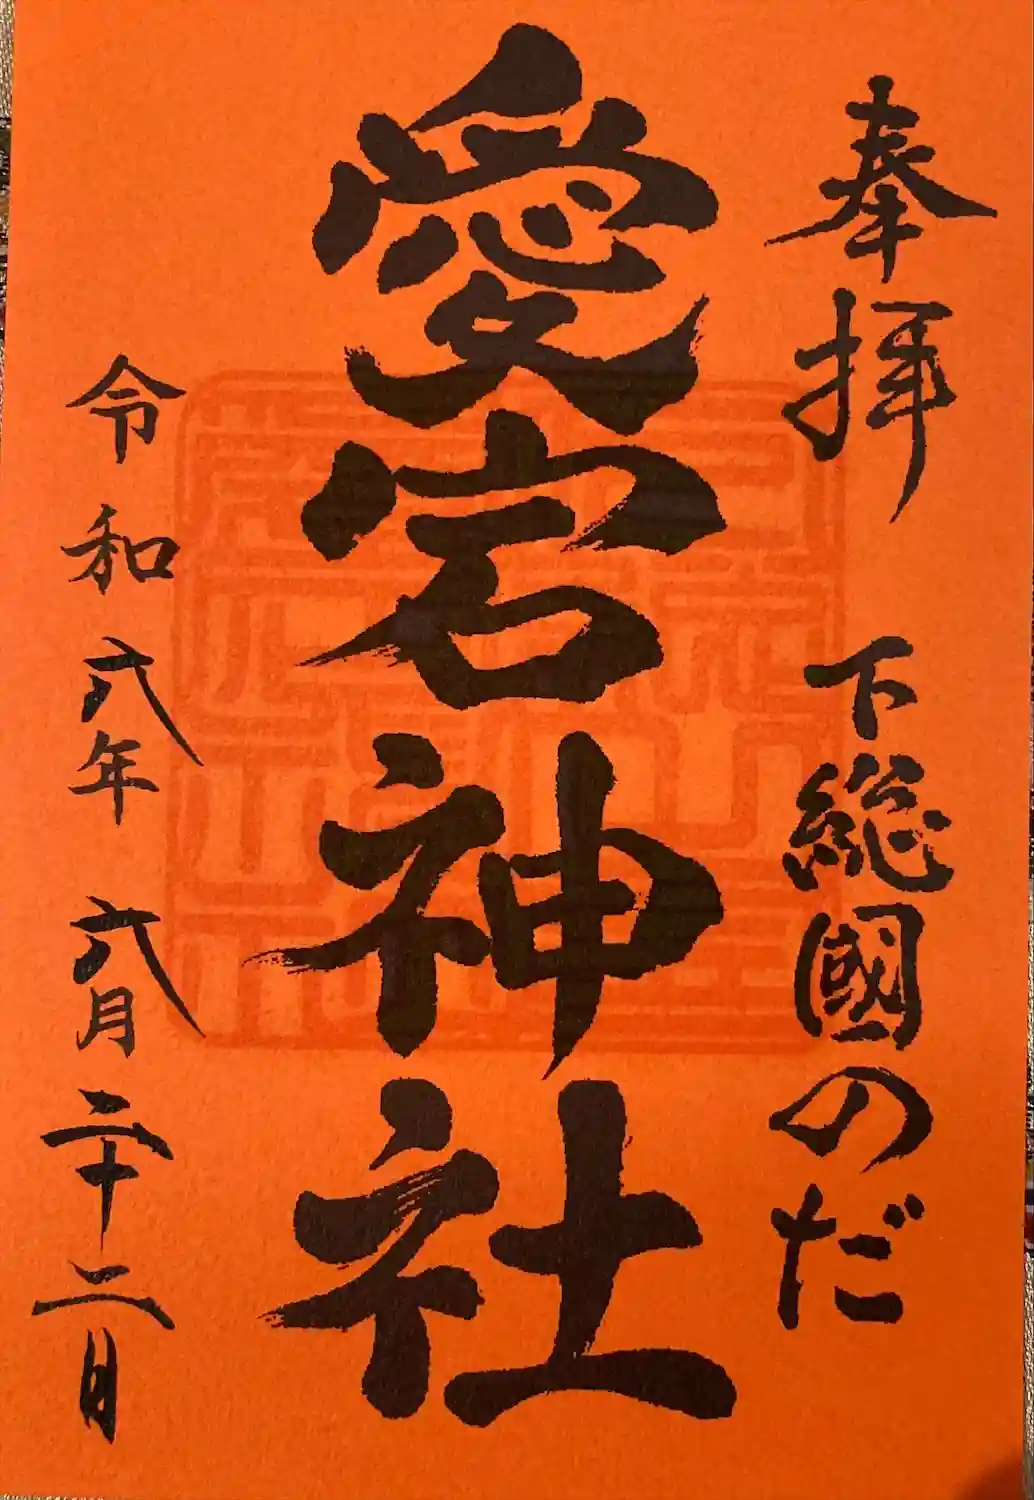 奉拝　下総國のだ
愛宕神社
令和六年　六月二十二日